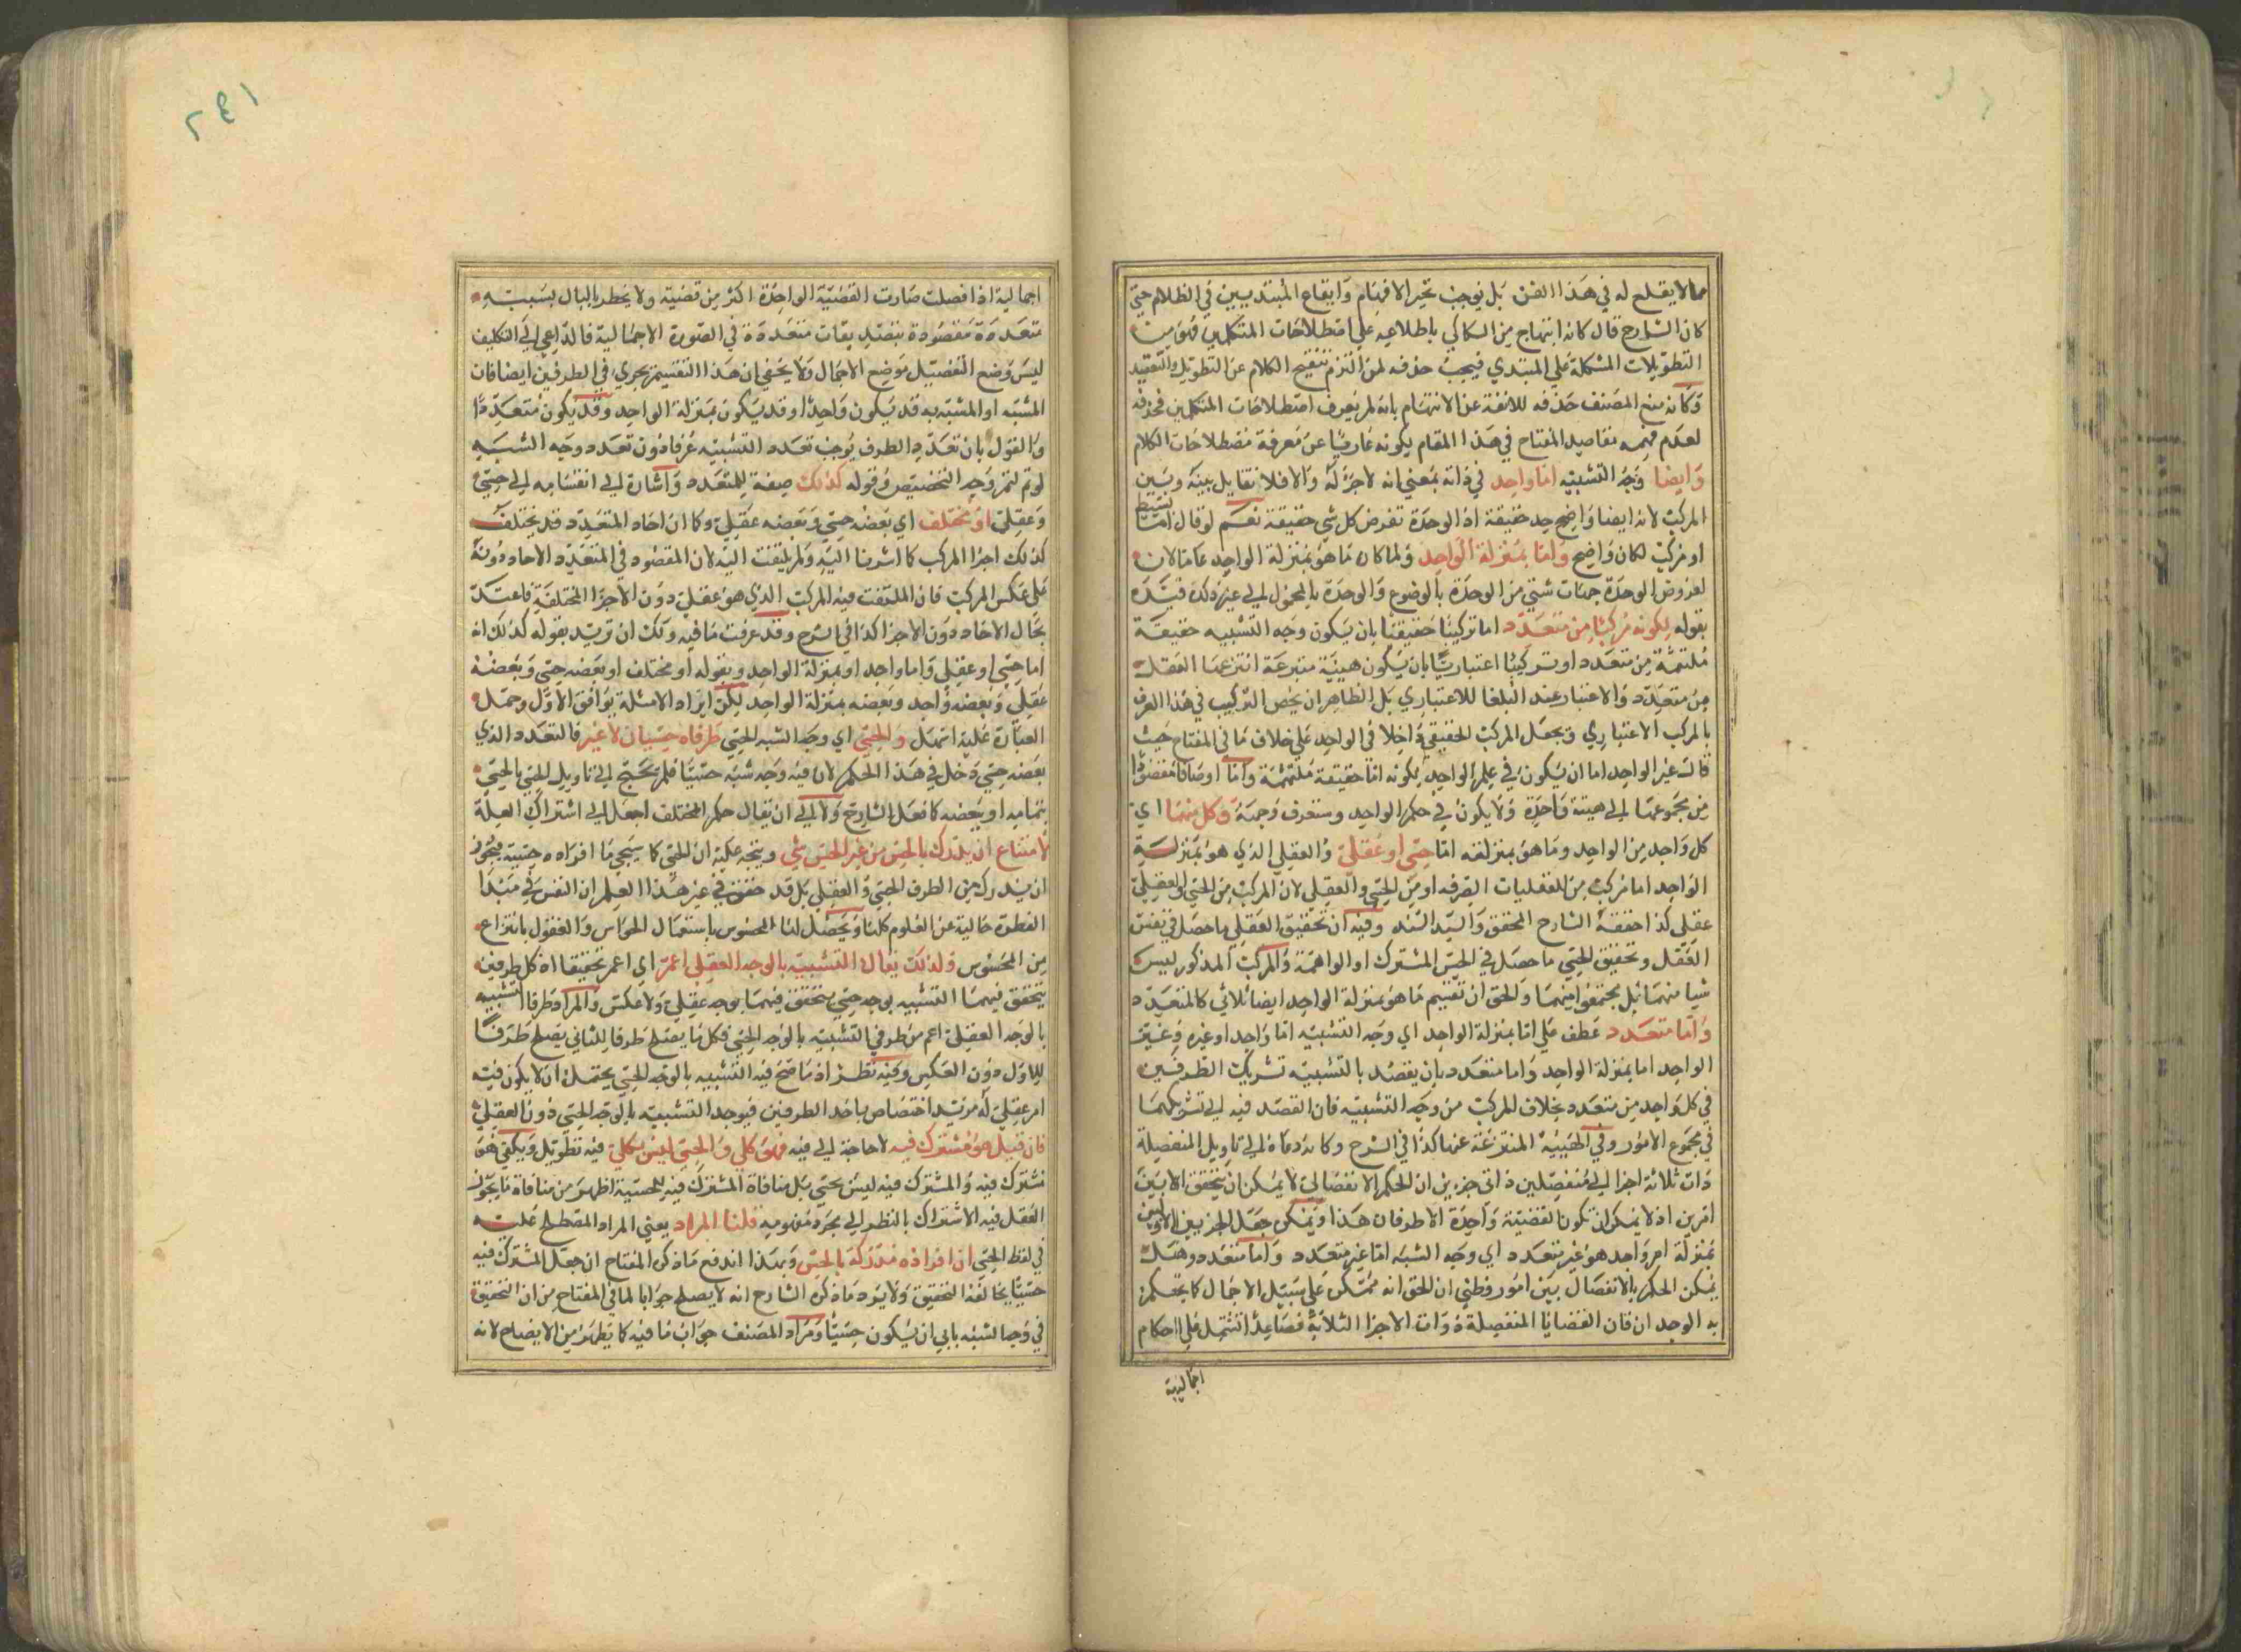 مما لا يقلع له في هذا الفن بل يوجب تحير الافهام وايقاع المبتديين في الظلام حتى
كان الشارح قال كانه ابتهاج من السكاكي باطلاعه على اصطلاحات المتكلمين فهو من
التطويلات المشكلة على المبتدي فيجب حذفه لمن التزم تنقيح الكلام عن التطويل والتعقيد
وكانه منع المصنف حذفه للانفة عن الاتهام بانه لم يعرف اصطلاحات المتكلمين فحذفه
لعدم فهمه مقاصد المفتاح في هذا المقام لكونه عاريا عن معرفة مصطلاحات الكلام
وايضا وجه التشبيه اما واحد في ذاته بمعنى انه لا جزء له والا فلا تقابل بينه وبين
المركب لانه ايضا واضح حد حقيقة اذ الوحدة تعرض كل شي حقيقة نعم لو قال اما بسيط
او مركب لكان واضح واما بمنزلة الواحد ولما كان ما هو بمنزلة الواحد عاما لان
لعروض الوحدة جهات شتى من الوحدة بالوضوع والوحدة بالمحمول الى غير ذلك قيده
بقوله لكونه مركبا من متعدد اما تركيبا حقيقيا بان يكون وجه التشبيه حقيقة
ملتئمة من متعدد او تركيبا اعتباريا بان يكون هيئة منتزعة انتزعها العقل
من متعدد والاعتبار عند البلغا للاعتباري بل الظاهر ان يخص التركيب في هذا العرف
بالمركب الاعتباري ويجعل المركب الحقيقي داخلا في الواحد على خلاف ما في المفتاح حيث
قال غير الواحد اما ان يكون في علم الواحد لكونه اما حقيقة ملتئمة واما اوصافا مقصودا
من مجموعها الى هيئة واحدة ولا يكون في حكم الواحد وستعرف وجهه وكل منهما اي
كل واحد من الواحد وما هو بمنزلته اما حسي او عقلي والعقلي الذي هو بمنزلة
الواحد اما مركب من العقليات الصرفة او من الحسي والعقلي لان المركب من الحسي والعقلي
عقلي كذا حققه الشارح المحقق والسيد السند وفيه ان تحقيق العقلي ما حصل في نفس
العقل وتحقيق الحسي ما حصل في الحس المشترك او الواهمة والمركب المذكور ليس
شيا منهما بل مجتمعا منهما والحق ان تقسيم ما هو بمنزلة الواحد ايضا ثلاثي كالمتعدد
واما متعدد عطف على اما بمنزلة الواحد اي وجه التشبيه اما واحد او غيره وغير
الواحد اما بمنزلة الواحد واما متعدد بان يقصد بالتشبيه تشريك الطرفين
في كل واحد من متعدد بخلاف المركب من وجه التشبيه فان القصد فيه الى تشريكهما
في مجموع الامور وفي الهيئة المنتزعة عنها كذا في الشرح وكانه دعاه الى تاويل المنفصلة
ذات ثلاثة اجزا الى منفصلين ذاتي جزءين ان الحكم الانفصالي لا يمكن ان يتحقق الا بين
امرين اذ لا يمكن ان تكون القضية واحدة الا طرفان هذا ويمكن جعل الجزءين الاولين
بمنزلة امر واحد هو غير متعدد اي وجه الشبه اما غير متعدد واما متعدد وهل
يمكن الحكم بالانفصال بين امور وظني ان الحق انه ممكن على سبيل الاجمال كما يحكم
به الوجدان فان القضايا المنفصلة ذوات الاجزا الثلاثة فصاعدا تشتمل على احكام
اجمالية
اجمالية اذا فصلت صارت القضية الواحدة اكثر من قضية ولا يخطر بالبال بسببه
متعددة مقصودة بتصديقات متعددة في الصورة الاجمالية فالداعي الى التكليف
ليس وضع التفصيل موضع الاجمال ولا يخفى ان هذا التقسيم يجري في الطرفين ايضا فان
المشبه او المشبه به قد يكون واحدا وقد يكون بمنزلة الواحد وقد يكون متعددا
والقول بان تعدد الطرف يوجب تعدد التشبيه عرفا دون تعدد وجه الشبه
لو تم لتم وجه التخصيص وقوله كذلك صفة للمتعدد واشارة الى انقسامه الى حسي
وعقلي او مختلف اي بعضه حسي وبعضه عقلي وكما ان احاد المتعدد قد يختلف
كذلك اجزا المركب كما اشرنا اليه ولم يلتفت اليه لان المقصود في المتعدد الاحاد دونه
على عكس المركب فان الملتفت فيه المركب الذي هو عقلي دون الاجزا المختلفة فاعتد
بحال الاحاد دون الاجزا كذا في الشرح وقد عرفت ما فيه ولك ان تريد بقوله كذلك انه
اما حسي او عقلي واما واحد او بمنزلة الواحد وبقوله او مختلف او بعضه حسي وبعضه
عقلي وبعضه واحد وبعضه بمنزلة الواحد لكن ايراد الامثلة يوافق الاول وحمل
العبارة عليه اسهل والحسي اي وجه الشبه الحسي طرفاه حسيان لا غير فالتعدد الذي
بعضه حسي دخل في هذا الحكم لان فيه وجه شبه حسيا فلم يحتج الى تاويل الحسي بالحسي
بتمامه او ببعضه كما فعل الشارح ولا الى ان يقال حكم المختلف اجعل الى اشتراك العلة
لامتناع ان يدرك بالحس من غير الحس شي ويتجه عليه ان الحسي كما سيجي ما افراده حسية فيجوز
ان يدرك من الطرف الحسي والعقلي بل قد حقق في غير هذا العلم ان النفس في مبدا
الفطرة خالية عن العلوم كلها ويحصل لنا المحسوس باستعمال الحواس والعقول بانتزاع
من المحسوس ولذلك يقال التشبيه بالوجه العقلي اعم اي اعم تحقيقا اذ كل طرفين
يتحقق فيهما التشبيه بوجه حسي يتحقق فيهما بوجه عقلي ولا عكس والمراد طرفا التشبيه
بالوجه العقلي اعم من طرفي التشبيه بالوجه الحسي فكل ما يصلح طرفا للثاني يصلح طرفا
للاول دون العكس وفيه نظر اذ ما صح فيه التشبيه بالوجه الحسي يحتمل ان لا يكون فيه
امر عقلي له مزيد اختصاص باحد الطرفين فيوجد التشبيه بالوجه الحسي دون العقلي
فان قيل هو مشترك فيه لا حاجة الى فيه فهو كلي والحسي ليس بكلي فيه تطويل ويكفي هو
مشترك فيه والمشترك فيه ليس بحسي بل منافاة المشترك فيه للحسية اظهر من منافاة ما يجوز
العقل فيه الاشتراك بالنظر الى مجرد مفهومه قلنا المراد يعني المراد المصطلح عليه
في لفظ الحسي ان افراده مدركة بالحس وبهذا اندفع ما ذكر المفتاح ان جعل المشترك فيه
حسيا يخالفه التحقيق ولا يرد ما ذكره الشارح انه لا يصلح جوابا لما في المفتاح من ان التحقيق
في وجه الشبه يابى ان يكون حسيا ومراد المصنف جواب ما فيه كما يظهر من الايضاح لانه